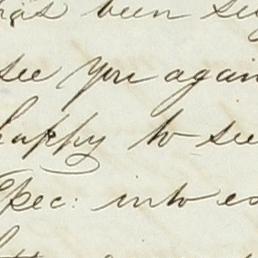 has been
see you again
happy to see
Spec: into